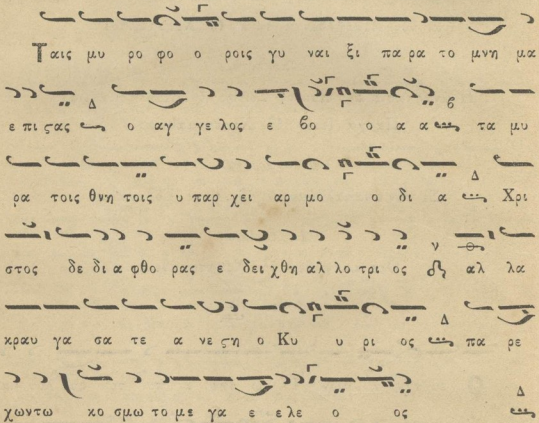 Ταις μυ ρο φο ο ροις γυ ναι ξι πα ρα το μνη μα
ε πι ϛας Δ ο αγ γε λος ε βο ο α α τα μυ
ρα τοις θνη τοις υ παρ χει αρ μο ο δι α Δ Χρι
στος δε δι α φθο ρας ε δει χθη αλ λο τρι ος αλ λα
κραυ γα σα τε α νε ϛη ο Κυ υ ρι ος Δ πα ρε
χωντω κο σμω το με γα ε ε λε ο ος Δ